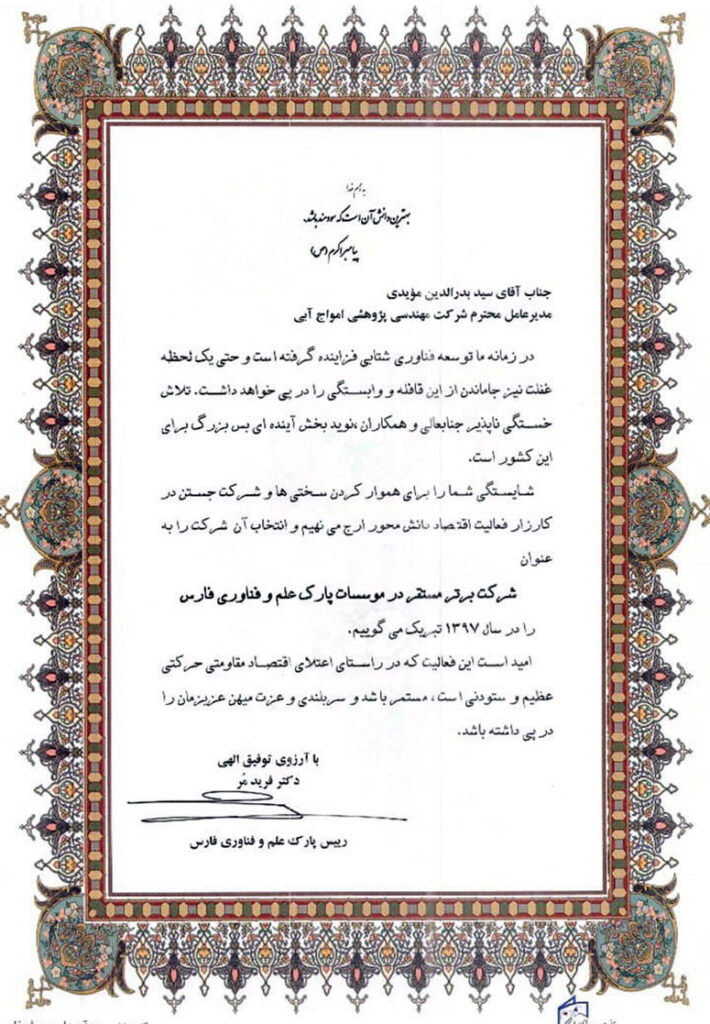 به نام خدا
بهترین دانش آن است که سودمند باشد.
پیامبر اکرم (ص)
جناب آقای سید بدرالدین مؤیدی
مدیرعامل محترم شرکت مهندسی پژوهشی امواج آبی
در زمانه ما توسعه فناوری شتابی فزاینده گرفته است و حتی یک لحظه
غفلت نیز جاماندن از این قافله و وابستگی را در پی خواهد داشت. تلاش
خستگی ناپذیر جنابعالی و همکاران، نوید بخش آینده ای بس بزرگ برای
این کشور است.
شایستگی شما را برای هموار کردن سختی ها و شرکت جستن در
کارزار فعالیت اقتصاد دانش محور ارج می نهیم و انتخاب آن شرکت را به
عنوان
شرکت برتر مستقر در موسسات پارک علم و فناوری فارس
را در سال ۱۳۹۷ تبریک می گوییم.
امید است این فعالیت که در راستای اعتلای اقتصاد مقاومتی حرکتی
عظیم و ستودنی است، مستمر باشد و سربلندی و عزت میهن عزیزمان را
در پی داشته باشد.
با آرزوی توفیق الهی
دکتر فرید مُر
رییس پارک علم و فناوری فارس